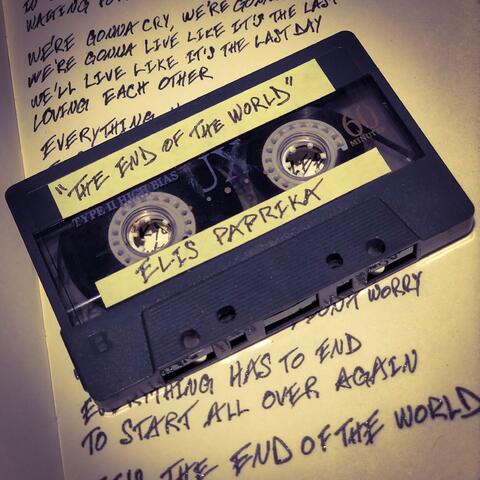 WE'RE GONNA CRY, WE'RE
WE'RE GONNA LIVE LIKE IT'S THE LAST
WE'LL LIVE LIKE IT'S THE LAST DAY
LOVING EACH OTHER
EVERYTHING
"THE END OF THE WORLD"
TYPE II HIGH BIAS
UX
60
MINUTE
ELIS PAPRIKA
B
DON'T WORRY
EVERYTHING HAS TO END
TO START ALL OVER AGAIN
THE END OF THE WORLD